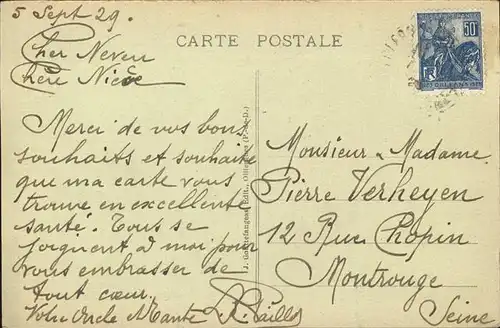 5 Sept 29.
Cher Neveu
Chère Nièce
Merci de vos bons
souhaits et souhaite
que ma carte vous
trouve en excellente
santé. Tous se
joignent à moi pour
vous embrasser de
tout cœur.
Votre Oncle et Tante
CARTE POSTALE
Édit., (P.-de-D.)
50c
ORLÉANS
Monsieur Madame
Pierre Verheyen
12 Rue Chopin
Montrouge
Seine